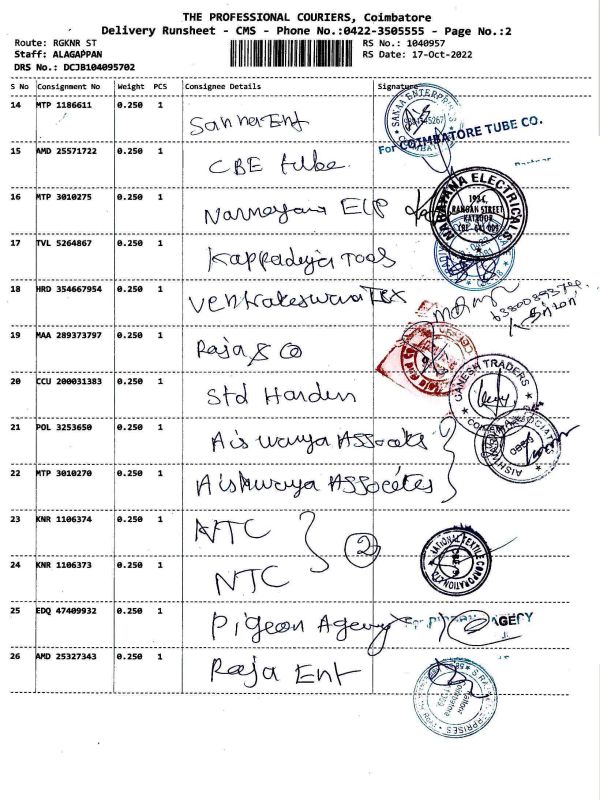 THE PROFESSIONAL COURIERS, Coimbatore
Delivery Runsheet - CMS - Phone No.:0422-3505555 - Page No.:2
Route: RGKNR ST
RS No.: 1040957
Staff: ALAGAPPAN
RS Date: 17-Oct-2022
DRS No.: DCJB104095702
S No Consignment No Weight PCS Consignee Details Signature
14 MTP 1186611 0.250 1 Sanna Ent
SANAA ENTERPRISES
For COIMBATORE TUBE CO.
15 AMD 25571722 0.250 1 CBE tube
Partner
16 MTP 3010275 0.250 1 Narrayana
NARAYANA ELECTRICALS
RANGAN STREET
KATTOOR
CBE - 641 009
17 TVL 5264867 0.250 1 Tools
18 HRD 354667954 0.250 1 Tex
19 MAA 289373797 0.250 1 Raja & Co
20 CCU 200031383 0.250 1 Std Harden
GANESH TRADERS
21 POL 3253650 0.250 1 Aiswarya Assocates
22 MTP 3010270 0.250 1 Aishwarya Assocites
23 KNR 1106374 0.250 1 NTC
2
NATIONAL TEXTILE CORPORATION LTD.
24 KNR 1106373 0.250 1 NTC
25 EDQ 47409932 0.250 1 Pigeon Agency
AGECY
26 AMD 25327343 0.250 1 Raja Ent